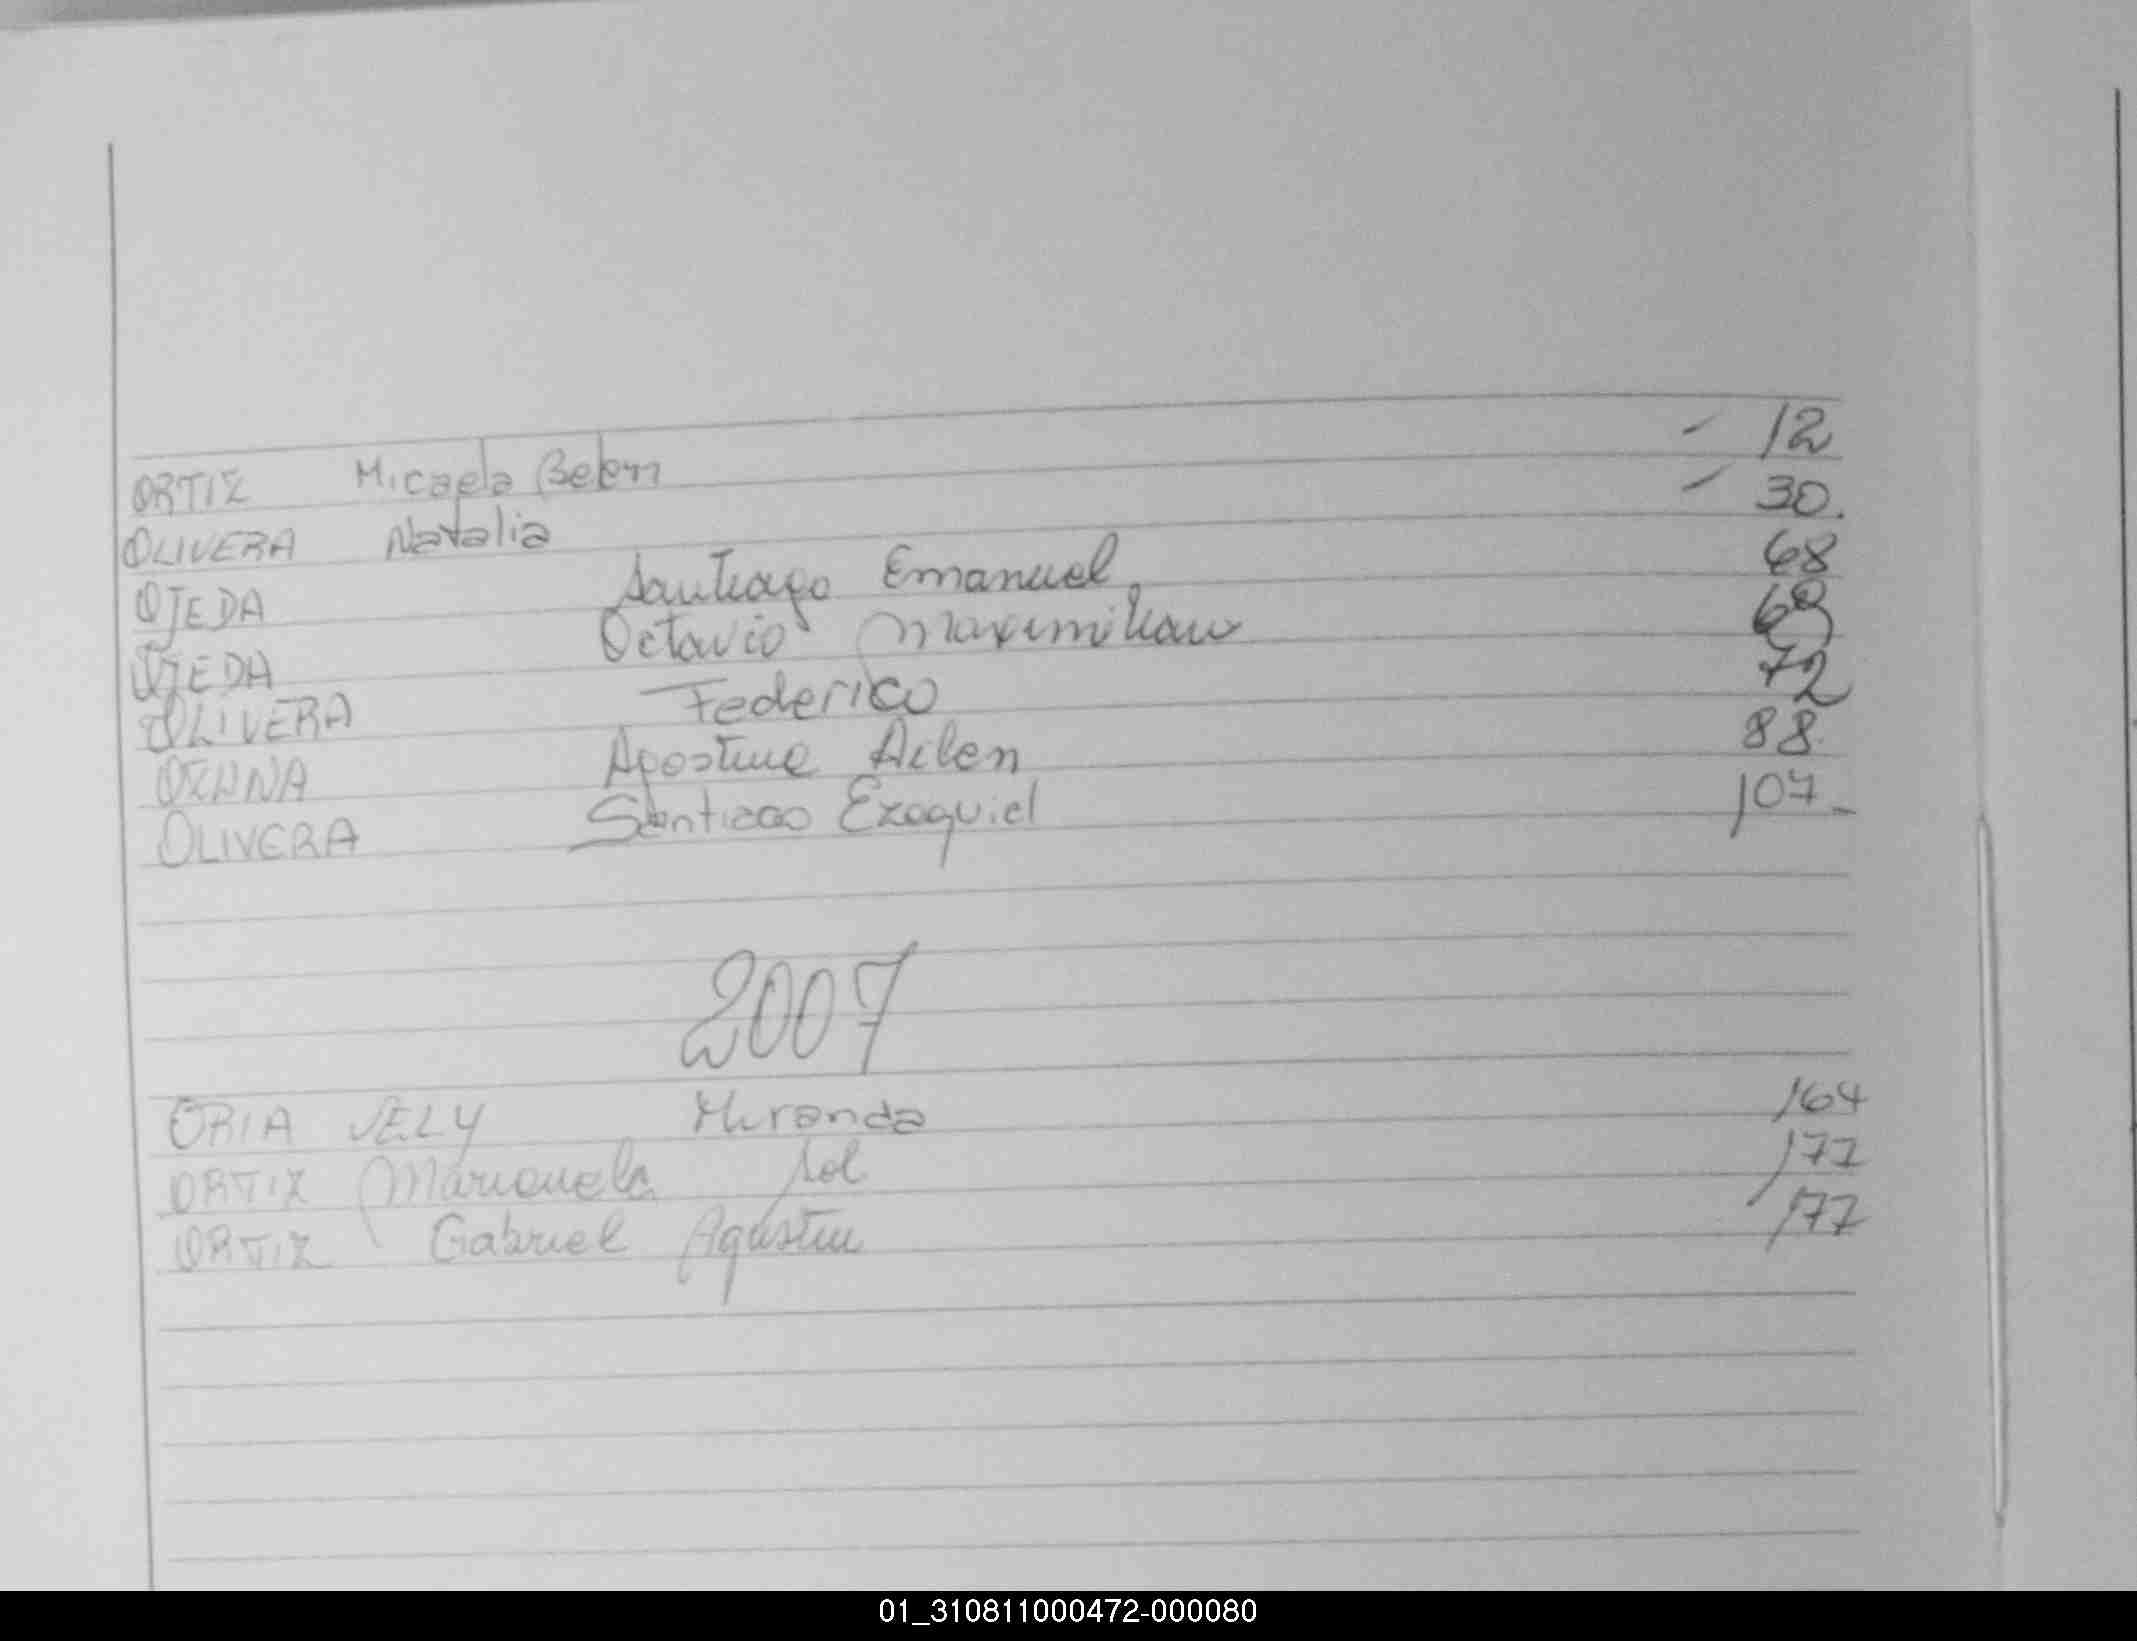 ORTIZ Micaela Belen - 12
OLIVERA Natalia - 30.
OJEDA Santiago Emanuel 68
OJEDA Octavio Maximiliano 69
OLIVERA Federico 72
Agostina Ailen 88
OLIVERA Santiago Ezequiel 107-
2007
ORIA VELY Miranda 164
ORTIZ Marianela Sol 177
ORTIZ Gabriel Agustin 177
01_310811000472-000080